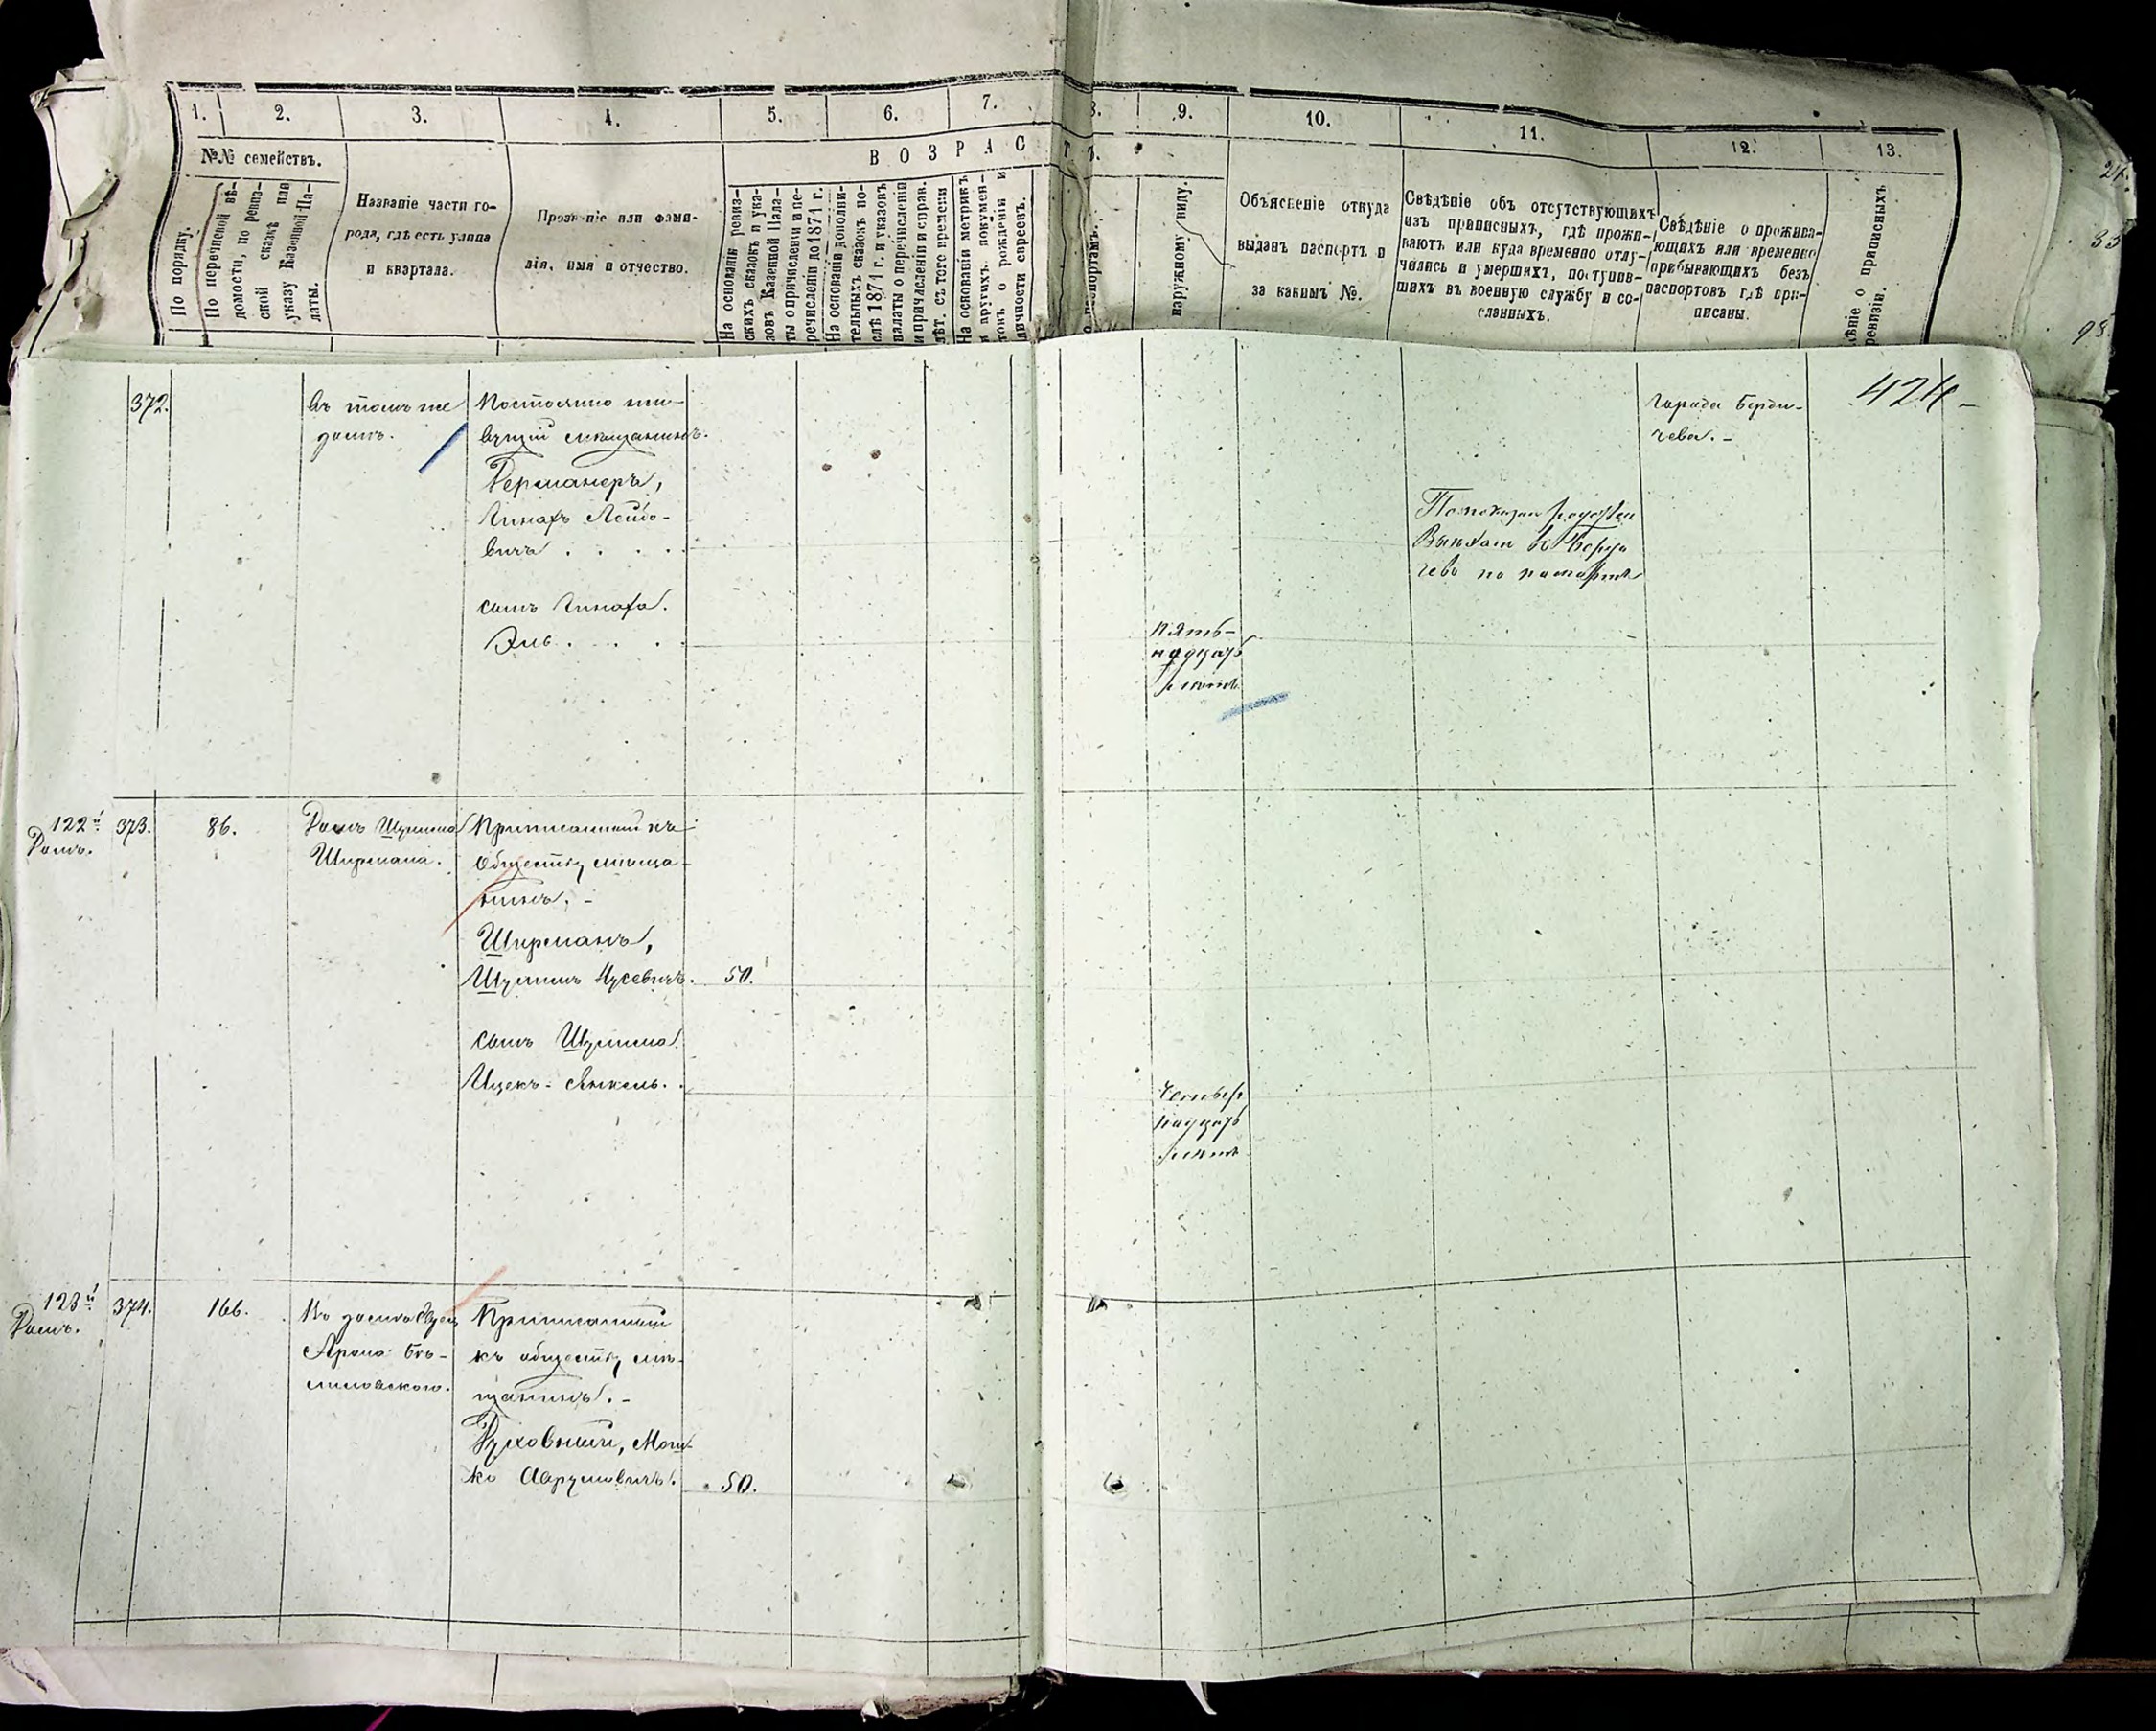 1. 2. 3. 4. 5. 6. 7. 8. 9. 10. 11. 12. 13.
№№ семействъ.
ВОЗРАСТЪ.
По порядку.
По перечневой вѣ-
домости, по ревиз-
ской сказкѣ или
указу Казенной Па-
латы.
Названіе части го-
рода, гдѣ есть улица
и квартала.
Прозваніе или фами-
лія, имя и отчество.
На основаніи ревиз-
скихъ сказокъ и ука-
зовъ Казенной Пала-
ты о причисленіи и пе-
речисленіи до 1871 г.
На основаніи дополни-
тельныхъ сказокъ по-
слѣ 1871 г. и указовъ
палаты о перечисленіи
и причисленіи и справ.
лѣт. съ того времени
На основаніи метрикъ
и другихъ докумен-
товъ о рожденіи и
личности евреевъ.
наружному виду.
Объясненіе откуда
выданъ паспортъ и
за какимъ №.
Свѣдѣніе объ отсутствующихъ
изъ приписныхъ, гдѣ прожи-
ваютъ или куда временно отлу-
чились и умершихъ, поступив-
шихъ въ военную службу и со-
сланныхъ.
Свѣдѣніе о прожива-
ющихъ или временно
прибывающихъ безъ
паспортовъ гдѣ при-
писаны.
о приписныхъ
424
372.
Въ томъ же
домѣ.
Постоянно жи-
вущій мѣщанинъ.
Германеръ,
вичъ . . . .
сынъ
Эль . . . .
Пять-
надцать
лѣтъ
Выехалъ въ Берди
чевъ по паспорту
города Берди-
чева. -
122й
Домъ.
373.
86.
Домъ Шулима
Ширмана.
Приписанный къ
обществу мѣща-
нинъ. -
Ширманъ,
Шулимъ Нусевичъ.
50.
сынъ Шулима.
Ицекъ-Янкель.
Четыр
надцать
лѣтъ
123й
Домъ.
374.
166.
Въ домѣ
Арона
Приписанный
къ обществу мѣ-
щанинъ. -
Духовный, Мош-
ко Аврумовичъ.
50.